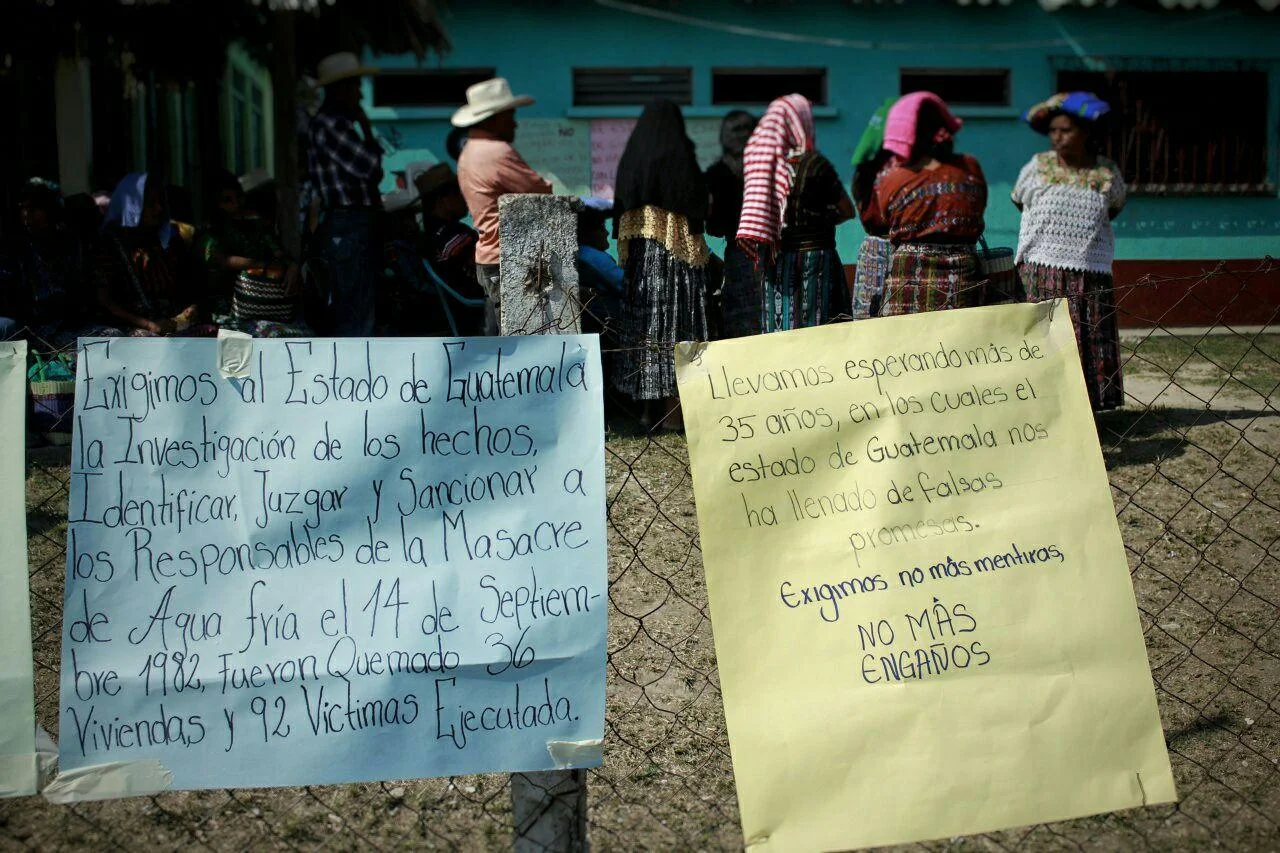 Exigimos al Estado de Guatemala
la Investigación de los hechos,
Identificar, Juzgar y Sancionar a
los Responsables de la Masacre
de Agua fría el 14 de Septiem-
bre 1982, Fueron Quemado 36
Viviendas, y 92 Victimas Ejecutada.
Llevamos esperando más de
35 años, en los cuales el
estado de Guatemala nos
ha llenado de falsas
promesas.
Exigimos no más mentiras,
NO MÁS
ENGAÑOS